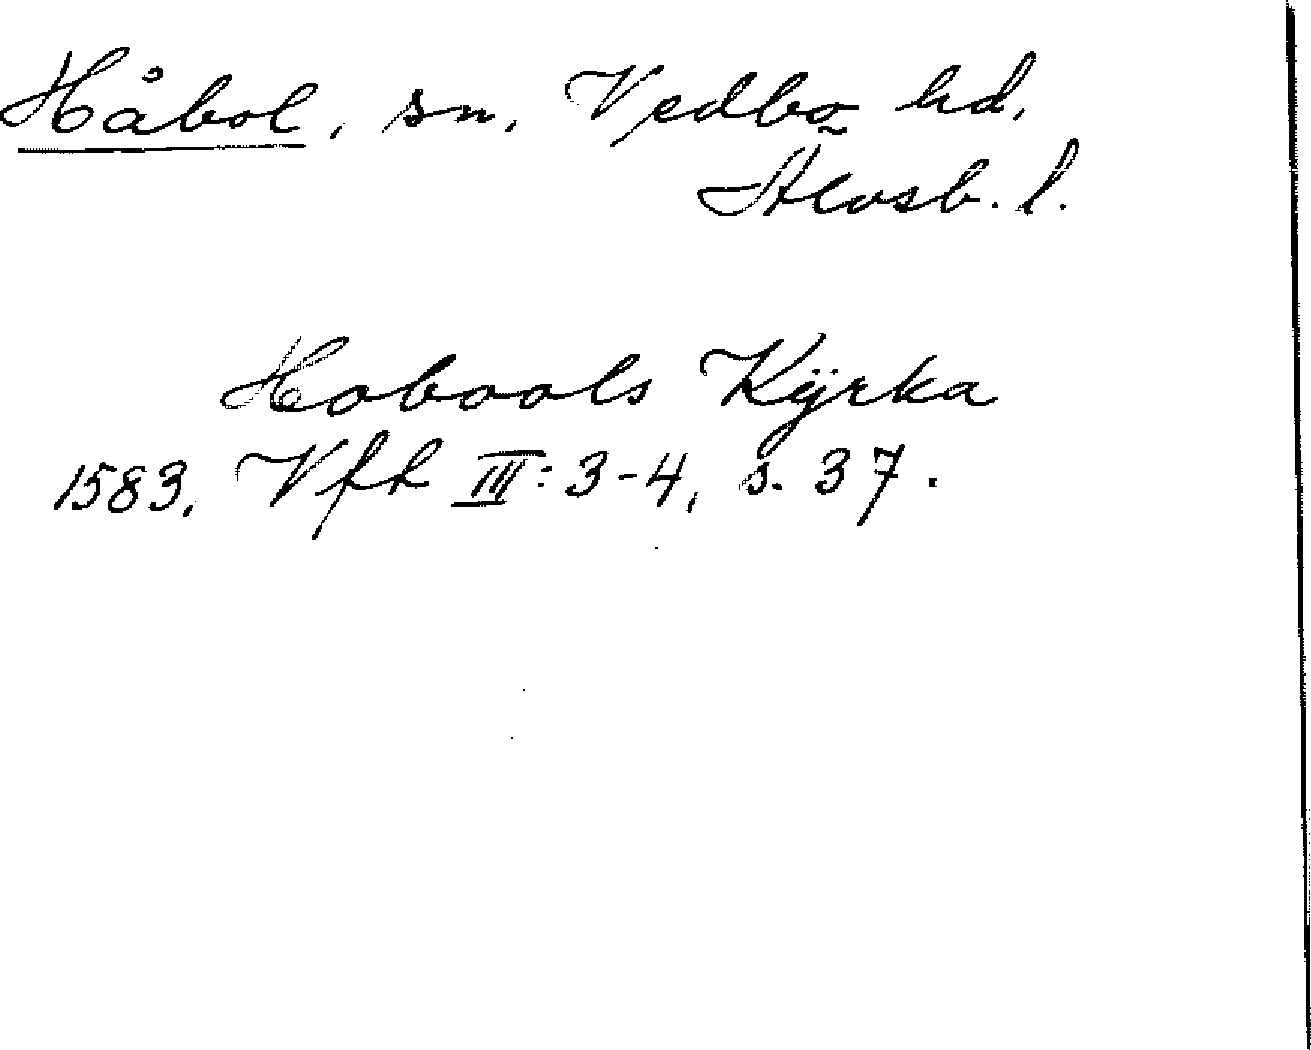 Håbol, sn, Vedbo hd,
Älvsb. l.
Hobools Kÿrka
1583. Vfh III: 3-4, s. 37.